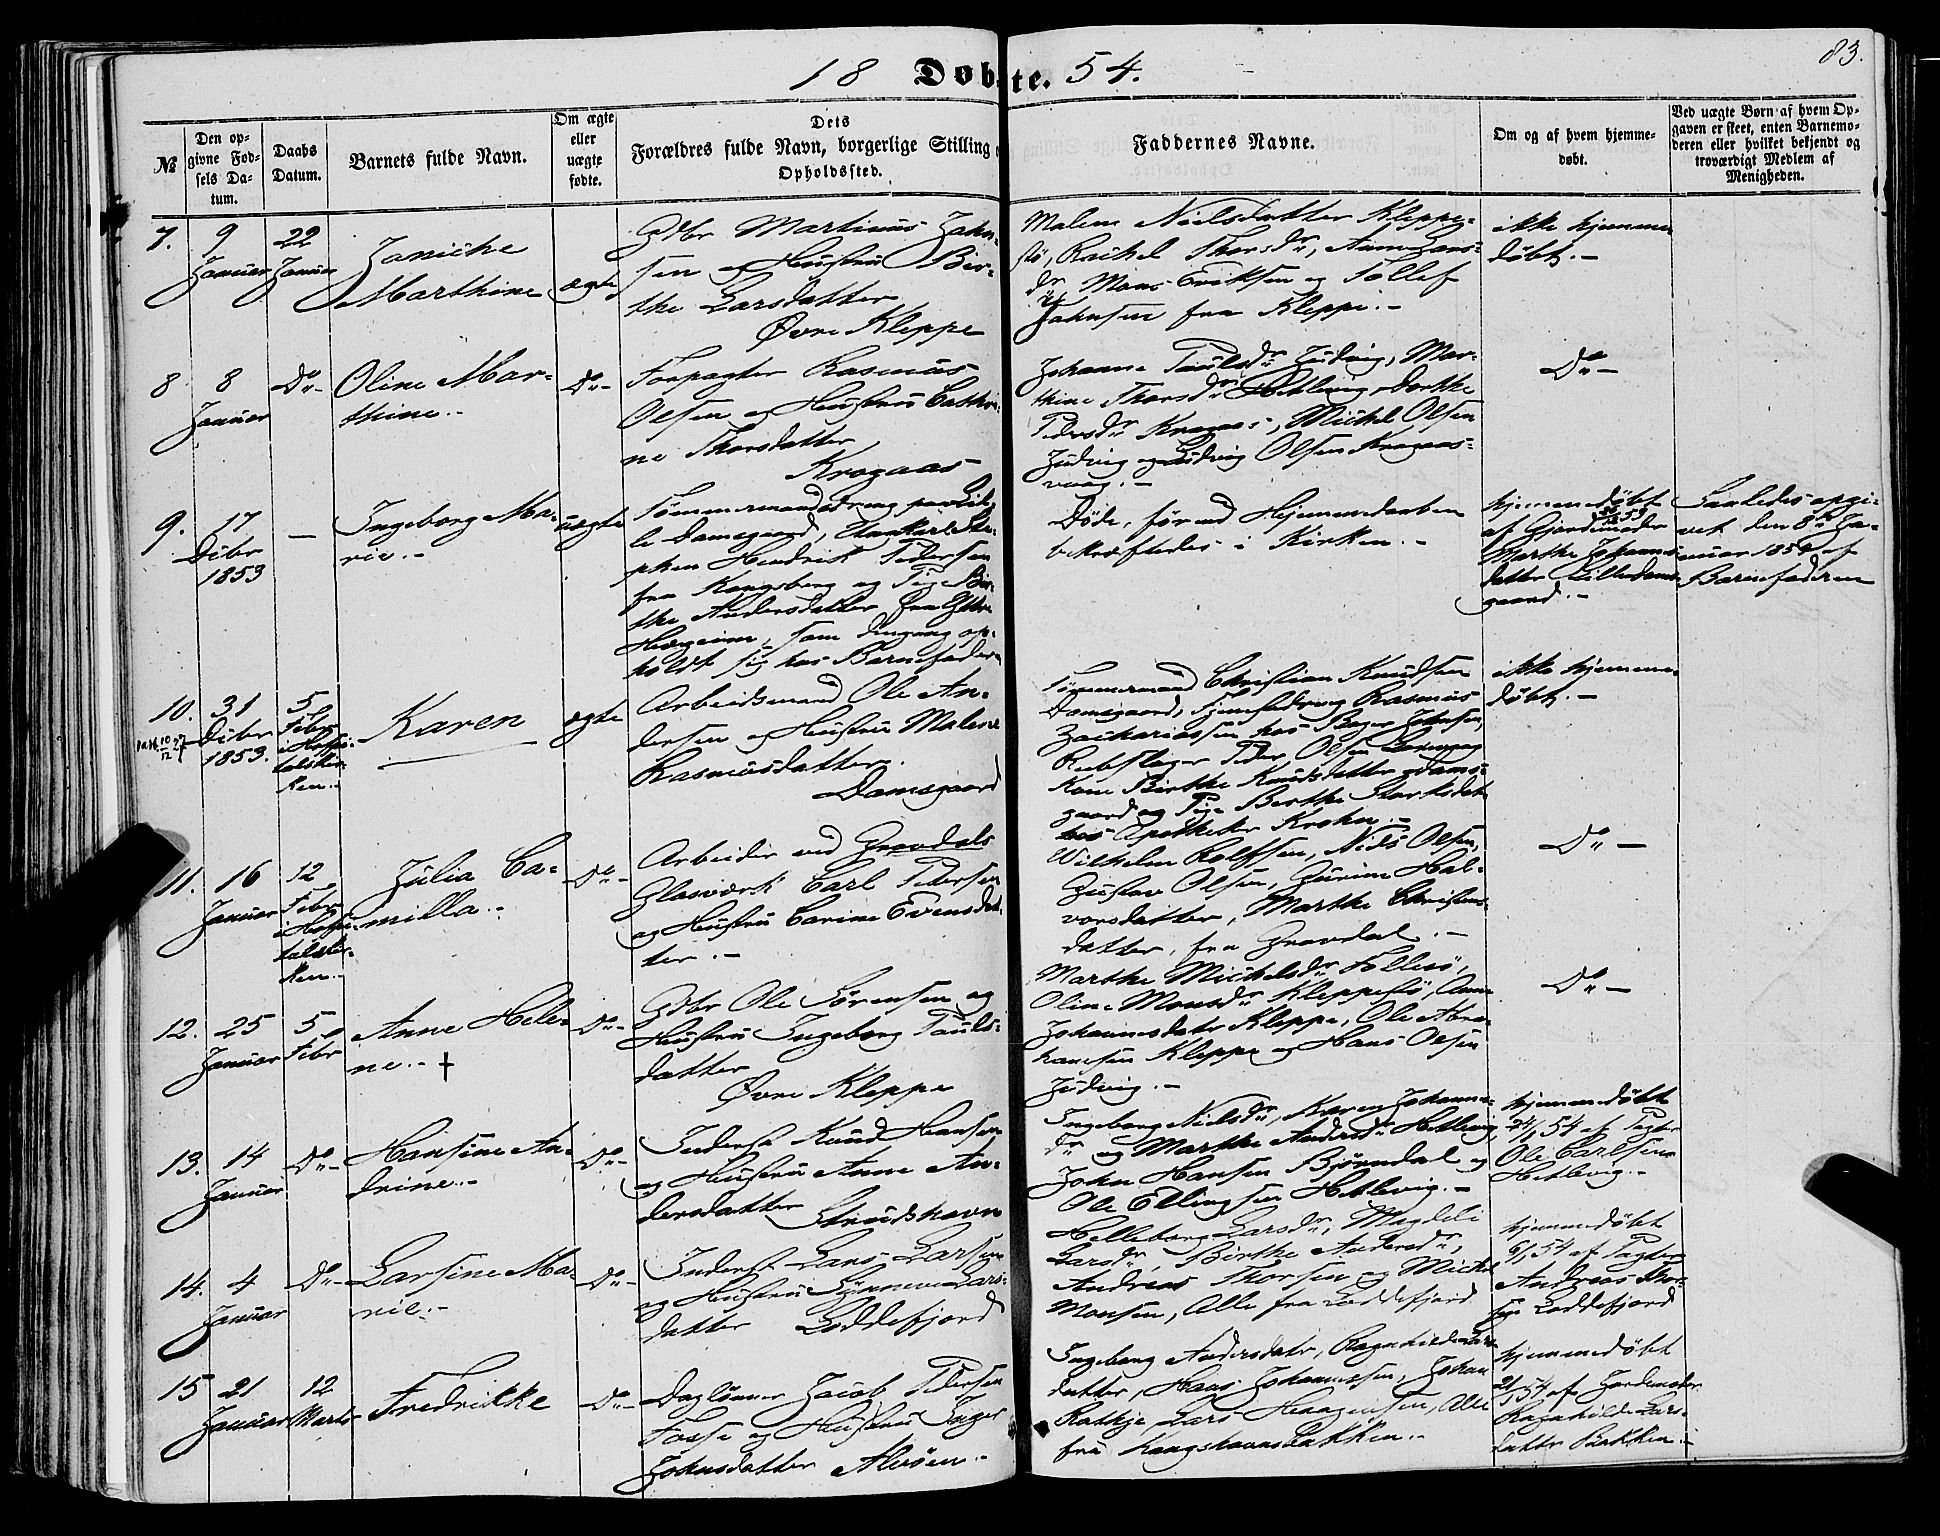 83.
18 Døbte. 54.
№
Den opgivne Fødsels Datum.
Daabs Datum.
Barnets fulde Navn.
Om ægte eller uægte fødte.
Dets Forældres fulde Navn, borgerlige Stilling Opholdssted.
Faddernes Navne.
Om og af hvem hjemmedøbt.
Ved uægte Børn af hvem Opgaven er skeet, enten Barnemoderen eller hvilket bekjendt og troværdigt Medlem af Menigheden.
7.
9
Januar
22
Januar
Janicke
Marthine
ægte
Gdbr Martinus John=
sen og Hustru Bir=
the Larsdatter
Øvre Kleppe
Malene Nielsdatter Kleppe=
stø, Rachel Thorsdr, Anne Hans=
dr, Mons Eriksen og Tollef
Johnsen fra Kleppe.-
ikke hjemme
døbt.-
8
8
Januar
Do-
Oline Mar=
thine.-
Do-
Forpagter Rasmus
Olsen og Hustru Cathri=
ne Thorsdatter
Krogaas
Johanne Paulsdr Judvig, Mar=
thine Thorsdr Hetlevig, Dorthe
Pedersdr Kragaas, Michel Olsen
Judvig og Ludvig Olsen Kragaas=
vaag.-
Do-
9.
17
Debr
1853
-
Ingeborg Ma=
rie.-
uægte
Tømmermandsdreng paa Lil=
le Damsgaard, Ste=
phen Hendrik Pedersen
fra Kongsberg og Pige Bir=
the Andersdatter fra
som dengang op=
holdt sig hos Barnefaderen
Døde, førend Hjemmedaaben
bekræftedes i Kirken.-
hjemmedøbt
af Gjordemoder
Marthe Johannes=
datter Lille Dams=
gaard.-
Saaledes opgi=
vet den 8de Ja=
nuar 1854 af
Barnefaderen
10.
31
Debr
1853.
5
Febr
i Hospi=
talskir=
ken.-
Karen
ægte
Arbeidsmand Ole An=
dersen og Hustru Malene
Rasmusdatter.
Damsgaard
Tømmermand Christian Knudsen
Damsgaard, Rasmus
Zachariassen hos Bager Johnsen,
Rebslager Peder Olsen
Kone Birthe Knudsdatter Dams=
gaard og Pige Birthe
hos Apotheker Krohn.-
ikke hjemme
døbt.-
11.
16
Januar
12
Febr
i Hospi=
talskir=
ken.-
Julia Ca=
milla.-
Do-
Arbeider ved Gravdals
Glasværk Carl Pedersen
og Hustru Carine Evensdat=
ter.-
Wilhelm Rolfsen, Niels Olsen,
Gustav Olsen, Gurine Hal=
vorsdatter, Marthe Christens=
datter, fra Gravdal.-
Do-
12.
25
Januar
5
Febr
Anne Hele=
ne.- +
Do-
Gdbr Ole Sørensen og
Hustru Ingeborg Pauls=
datter
Øvre Kleppe
Marthe Michelsdr Follesø,
Oline Monsdr Kleppestø, Anne
Johannesdatr Kleppe, Ole Abra=
hamsen Kleppe og Hans Olsen
Judvig.-
Do-
13.
14
Januar
Do-
Hansine An=
drine.-
Do-
Inderst Knud Hansen
og Hustru Anne An=
dersdatter Strudshavn
Ingeborg Nielsdr, Karen Johannes=
dr og Marthe Andersdr Hetlevig,
John Hansen Bjørndal og
Ole Ellingsen Hetlevig.-
hjemmedøbt
24/1 54 af Pagter
Ole Carlsen
Hetlevig.-
14.
4
Januar
Do-
Larsine Ma=
rie.-
Do-
Inderst Lars Larsen
og Hustru Synneve Lars=
datter Loddefjord
Helleborg Larsdr, Magdeli
Larsdr, Birthe Andersdr,
Andreas Thorsen og Michel
Monsen, Alle fra Loddefjord
hjemmedøbt
6/1 54 af Pagter
Andreas Thor=
sen Loddefjord
15
21
Januar
12
Marts
Fredrikke
Do-
Daglønner Jacob Pedersen
Fosse og Hustru Inger
Johnsdatter Alvøen.-
Ingeborg Andersdatr, Ragnhilde Lars=
datter, Hans Johannessen, Johan
Rathje, Lars Haagensen, Alle
fra Kongshavnsbakken.-
hjemmedøbt
21/1 54 af Jordemoder
Ragnhilde Lars=
datter Bakken.-